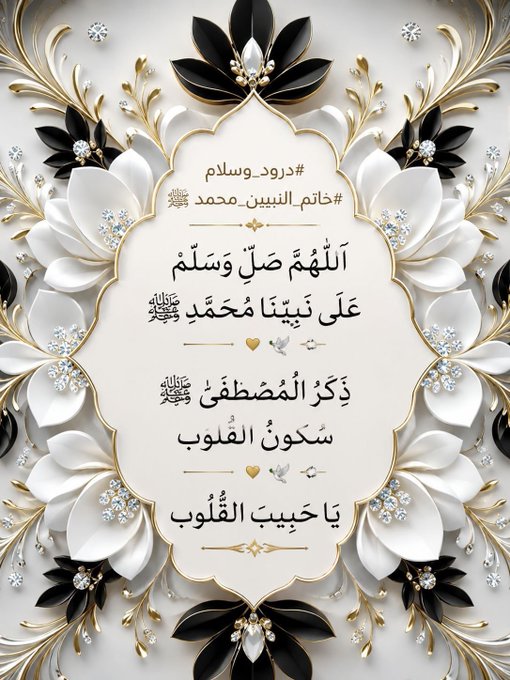 #درود_وسلام
#خاتم_النبيين_محمد ﷺ
اَللّٰهُمَّ صَلِّ وَسَلِّمْ
عَلَى نَبِيِّنَا مُحَمَّدِ ﷺ
ذِكَرُ الْمُصْطَفَىٰ ﷺ
سُكُونُ القُلُوَب
يَا حَبِيبَ القُّلُوب